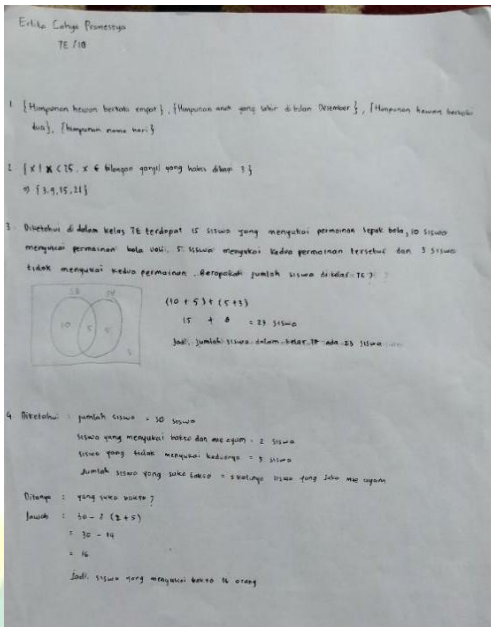 Erlita Cahya Pramestya
TE / 10
1 {Himpunan hewan berkaki empat}, {Himpunan anak yang lahir di bulan Desember}, {Himpunan hewan berkaki
dua}, {himpunan nama hari}
2. {x | x < 25, x ∈ bilangan ganjil yang habis dibagi 3}
{3, 9, 15, 21}
3. Diketahui didalam kelas TE terdapat 15 siswa yang menyukai permainan sepak bola, 10 siswa
menyukai permainan bola voli. 5 siswa menyukai kedua permainan tersebut dan 3 siswa
tidak menyukai kedua permainan. Berapakah jumlah siswa di kelas TE?
10 5 5
3
(10 + 5) + (5+3)
15 + 8 = 23 siswa
Jadi, jumlah siswa dalam kelas TE ada 23 siswa
4 Diketahui : jumlah siswa = 30 siswa
siswa yang menyukai bakso dan mie ayam = 2 siswa
siswa yang tidak menyukai keduanya = 5 siswa
Jumlah siswa yang suka bakso = siswa yang suka mie ayam
Ditanya : yang suka bakso ?
Jawab : 30 - 2 (2+5)
= 30 - 14
= 16
Jadi, siswa yang menyukai bakso 16 orang